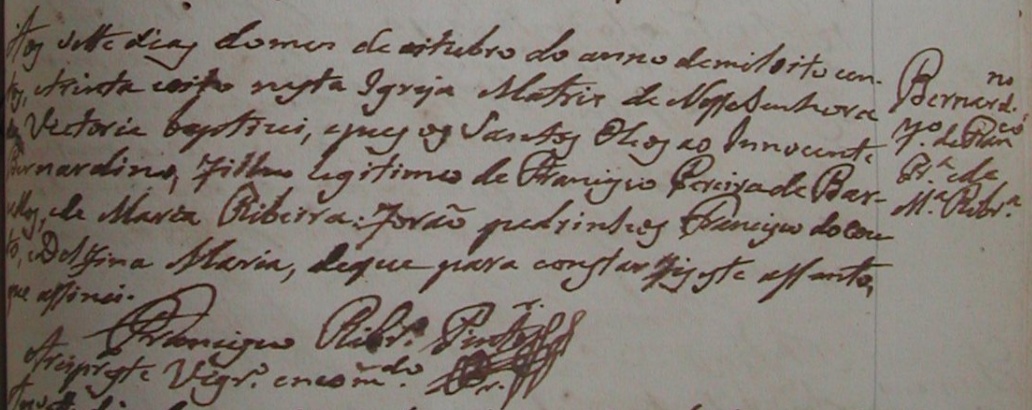 Aos sette dias do mes de oitubro do anno de mil oito cen-
tos, e trinta e oito nesta Igreja Matris de Nossa Senhora
da Victoria baptisei, e pus os Santos Oleos ao Innocente
Bernardino, filho legitimo de Francisco Pereira de Bar-
ros, e de Maria Ribeira: forão padrinhos Francisco do Cou
to, e Delfina Maria, de que para constar fis este assento,
que assinei.
Francisco Ribr.º Pinto
Arcipreste Vigr.º encom.do
Bernard.no
f.º de Fran.co
Pr.ª e de
M.ª Ribr.ª